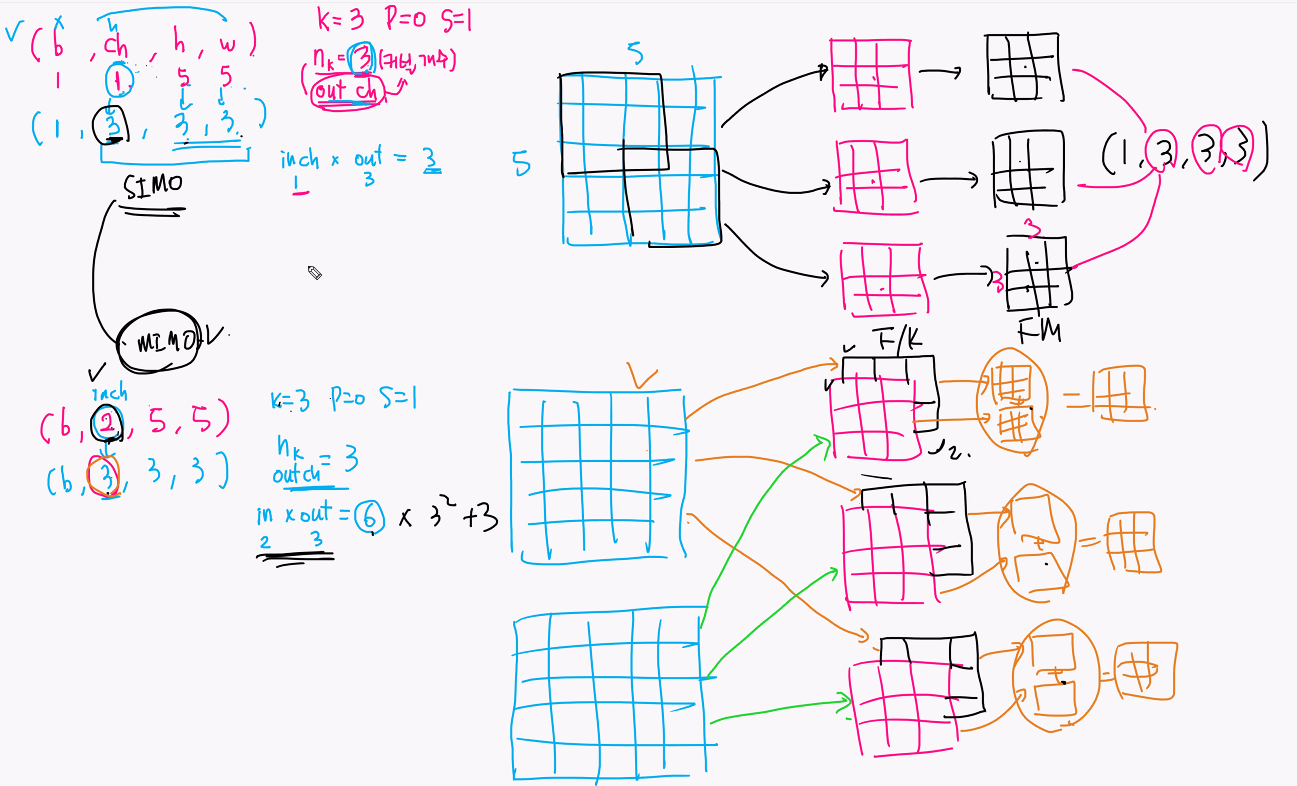 x h
(b , ch , h , w)
1 1 5 5
(1 , 3 , 3 , 3)
SIMO
K=3 P=0 S=1
nk = 3
out ch
inch x out = 3
1 3
5
5
(1, 3, 3, 3)
3
3
F/K
FM
MIMO
inch
(b, 2, 5, 5)
(b, 3, 3, 3)
K=3 P=0 S=1
nk
outch = 3
in x out = 6 x 3² + 3
2 3
2.
+ =
+ =
+ =